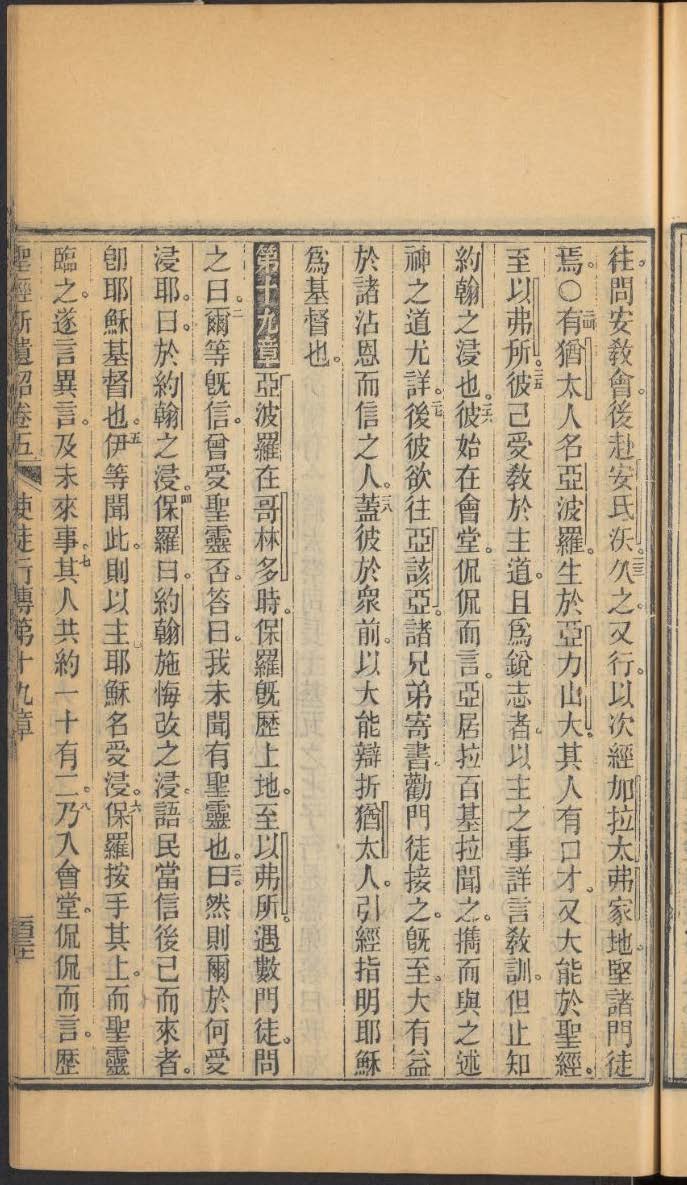 往問安敎會。後赴安氏沃。二三久之。又行。以次經加拉太弗家地。堅諸門徒
焉。○二四有猶太人名亞波羅。生於亞力山大。其人有口才。又大能於聖經。
至以弗所。二五彼已受敎於主道。且爲銳志者。以主之事詳言敎訓。但止知
約翰之浸也。二六彼始在會堂。侃侃而言。亞居拉百基拉聞之。擕而與之述
神之道尤詳。二七後彼欲往亞該亞。諸兄弟寄書勸門徒接之。旣至。大有益
於諸沾恩而信之人。二八蓋彼於衆前。以大能辯折猶太人。引經指明耶穌
爲基督也。
第十九章亞波羅在哥林多時。保羅旣歷上地。至以弗所。遇數門徒。問
之曰。二爾等旣信。曾受聖靈否。答曰。我未聞有聖靈也。三曰。然則爾於何受
浸耶。曰。於約翰之浸。四保羅曰。約翰施悔改之浸。語民當信後己而來者。
卽耶穌基督也。五伊等聞此。則以主耶穌名受浸。六保羅按手其上。而聖靈
臨之。遂言異言。及未來事。七其人共約一十有二。八乃入會堂。侃侃而言。歷
聖經新遺詔卷五 使徒行傳第十九章